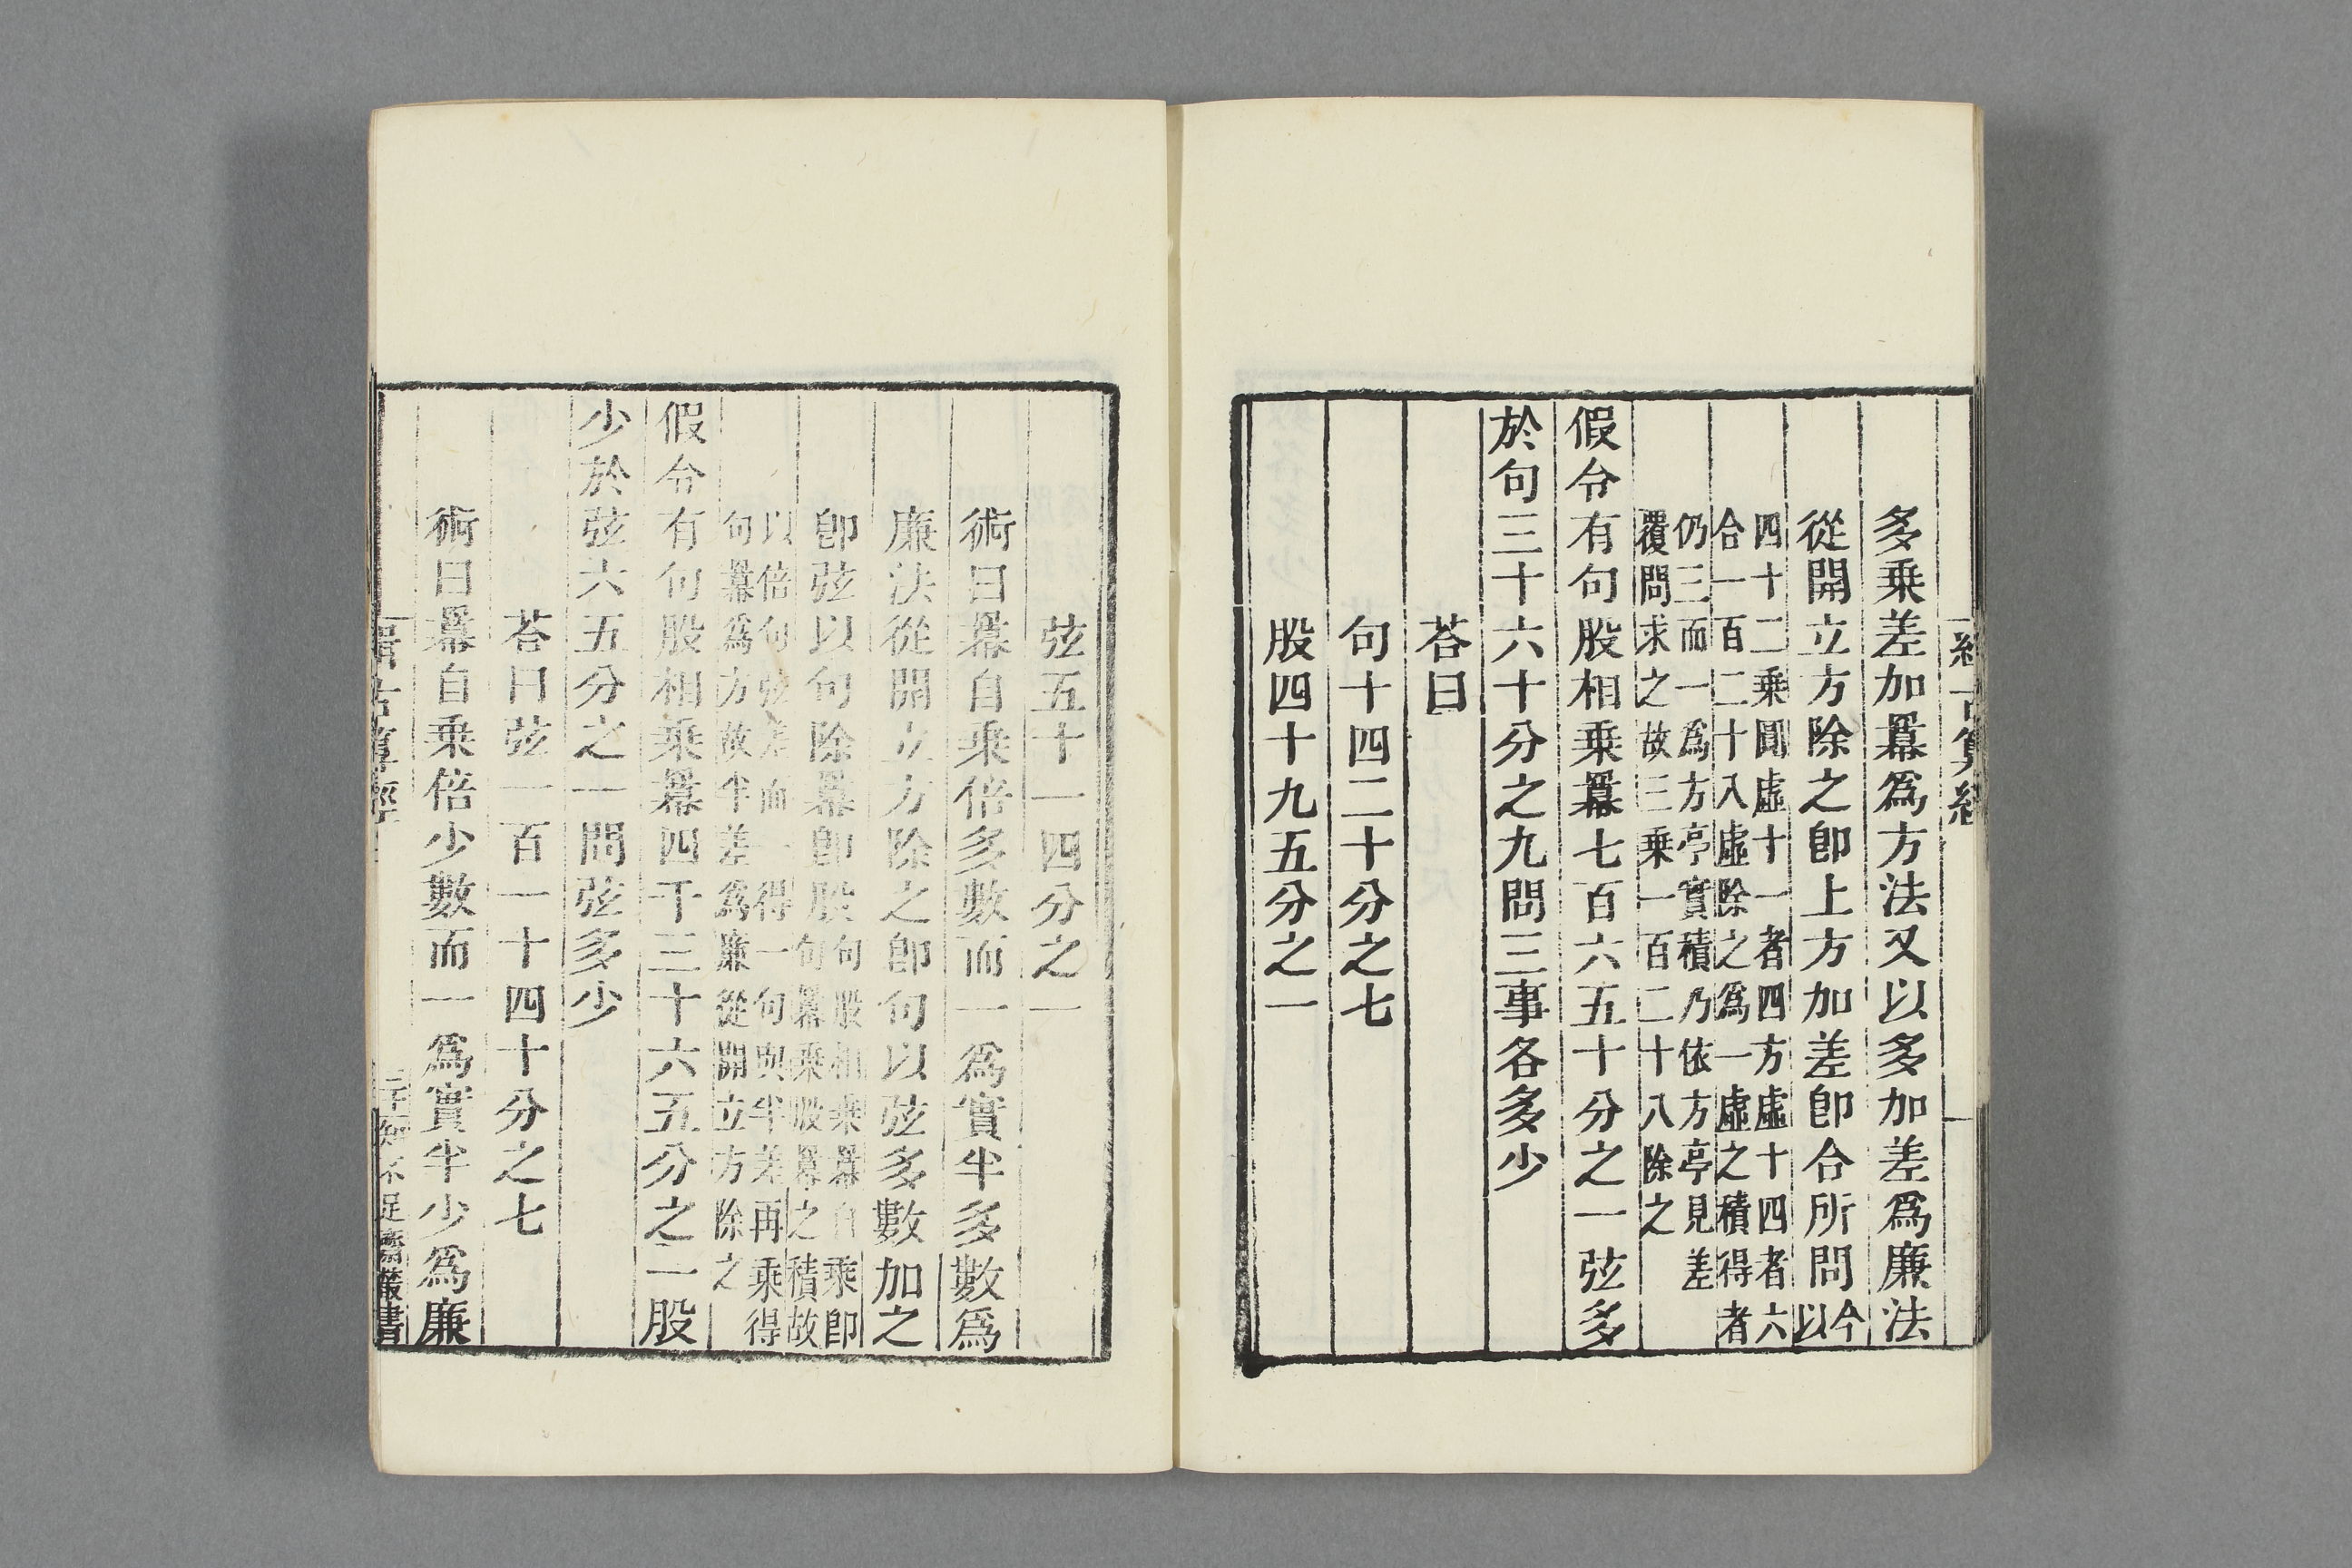 緝古算經
多乘差加羃爲方法又以多加差爲廉法
從開立方除之卽上方加差卽合所問今
以
四十二乘圓虛十一者四方虛十四者六
合一百二十八虛除之爲一虛之積得者
仍三而一爲方亭實積乃依方亭見差
覆問求之故三乘一百二十八除之
假令有句股相乘羃七百六五十分之一弦多
於句三十六十分之九問三事各多少
荅曰
句十四二十分之七
股四十九五分之一
弦五十一四分之一
術曰羃自乘倍多數而一爲實半多數爲
廉法從開立方除之卽句以弦多數加之
卽弦以句除羃卽股句股相乘羃自乘卽
句羃乘股羃之積故
以倍句弦差而一得一句與半差再乘得
句羃爲方故半差爲廉從開立方除之
假令有句股相乘羃四千三十六五分之一股
少於弦六五分之一問弦多少
荅曰弦一百一十四十分之七
術曰羃自乘倍少數而一爲實半少爲廉
緝古算經
知不足齋叢書